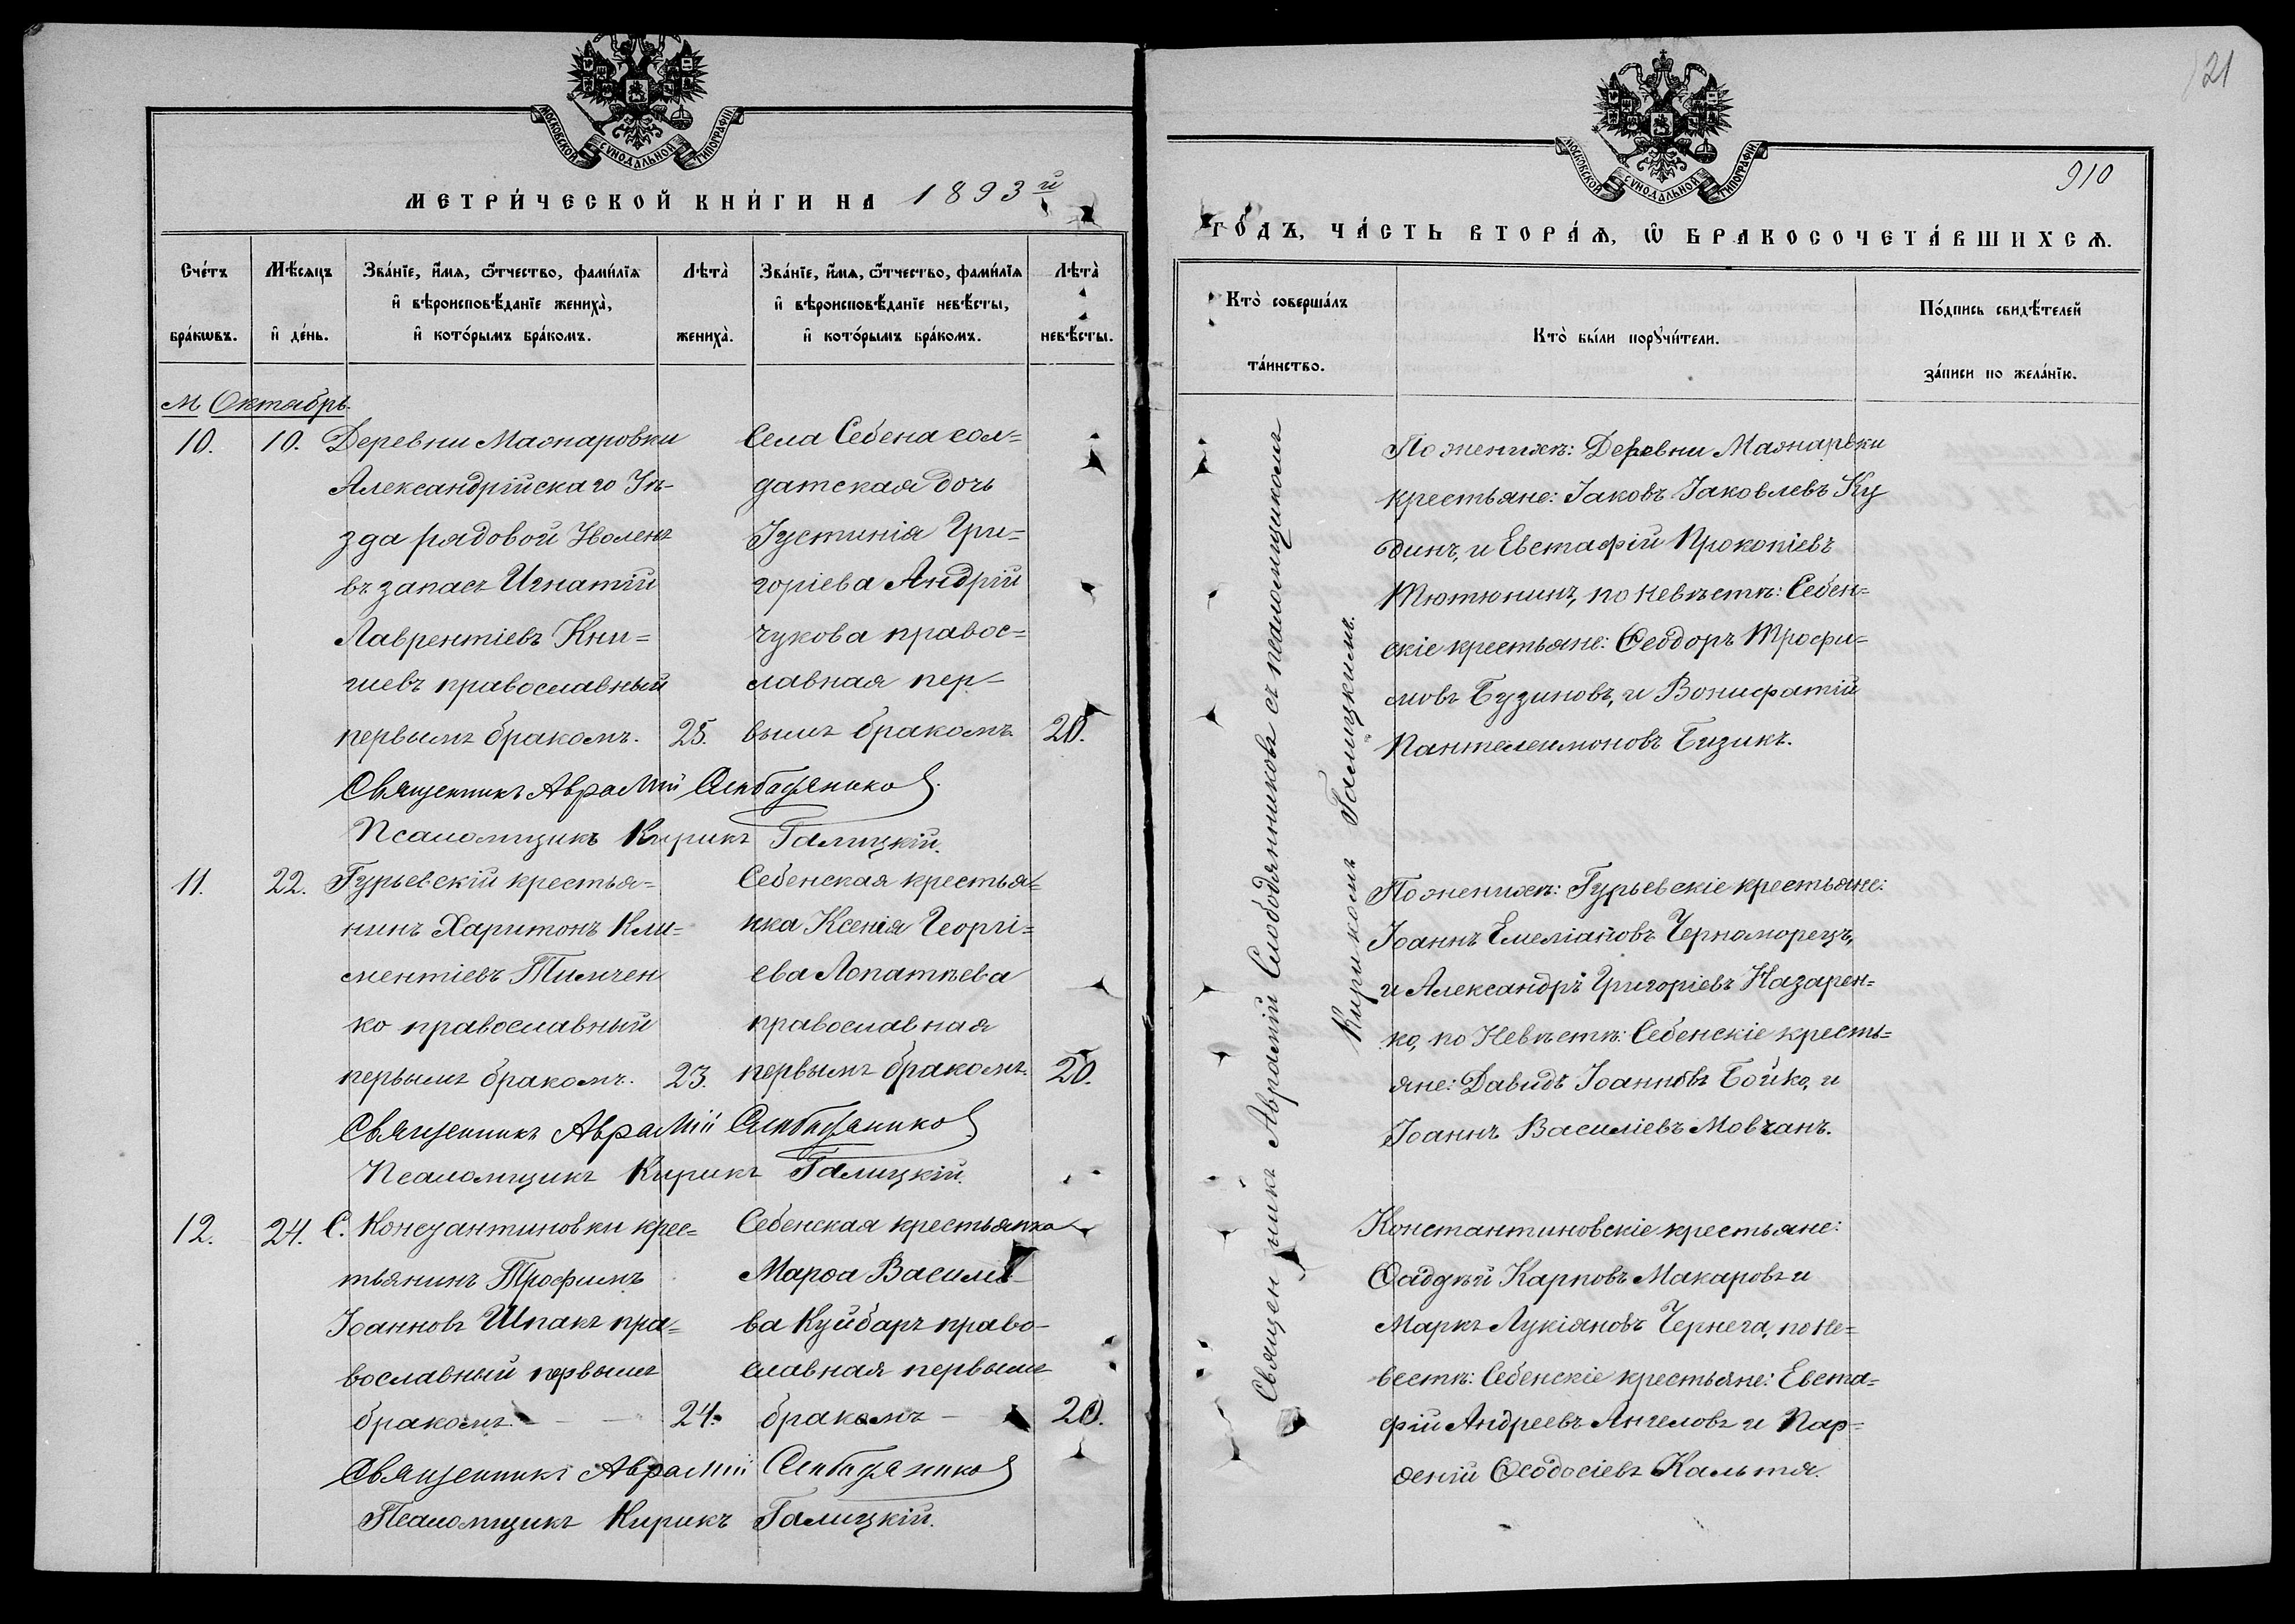 МОСКОВСКОЙ СѴНОДАЛЬНОЙ ТИПОГРАФІИ
МЕТРИ́ЧЕСКОЙ КНИ́ГИ НА 1893й
Сче́тъ бра́кѡвъ.
Мѣ́сяцъ и҆ де́нь.
Зва́нїе, и҆́мя, ѻ҆́тчество, фами́лїя
и҆ вѣроисповѣ́данїе жениха̀,
и҆ кото́рымъ бра́комъ.
Лѣта̀ жениха̀.
Зва́нїе, и҆́мя, ѻ҆́тчество, фами́лїя
и҆ вѣроисповѣ́данїе невѣ́сты,
и҆ кото́рымъ бра́комъ.
Лѣта̀ невѣ́сты.
М Октябрь.
10.
10.
Деревни
Александрійскаго Уѣ-
зда рядовой Уволенъ
въ запасъ Игнатій
Лаврентіевъ Кни=
шевъ православный
первымъ бракомъ.
25.
Села Себена сол=
датская дочь
Іустинія Гри=
горіева Андрій
чукова правос=
лавная пер=
вымъ бракомъ
20.
Священникъ Аврамій
Псаломщикъ Кирикъ Галицкій.
11.
22.
Гурьевскій крестья=
нинъ Харитонъ Кли=
ментіевъ Тимчен
ко православный
первымъ бракомъ.
23.
Себенская крестья=
нка Ксенія Георгі=
ева Лопатѣева
православная
первымъ бракомъ.
20.
Священникъ Аврамій
Псаломщикъ Кирикъ Галицкій.
12.
24.
С. Константиновки крес=
тьянинъ Трофимъ
Іоанновъ Шпакъ пра=
вославный первымъ
бракомъ. -
24.
Себенская крестьянка
Марѳа Василіе
ва Куйбаръ право-
славная первымъ
бракомъ -
20.
Священникъ Аврамій
Псаломщикъ Кирикъ Галицкій.
21
910
МОСКОВСКОЙ СѴНОДАЛЬНОЙ ТИПОГРАФІИ
ГО́ДЪ, ЧА́СТЬ ВТОРА́Ѧ, Ѡ҆ БРАКОСОЧЕТА́ВШИХСѦ.
Кто̀ соверша́лъ та́инство.
Кто̀ бы́ли порꙋчи́тели.
По́дпись свидѣ́телей
за́писи по жела́нїю.
Священникъ Аврамій Слободянниковъ съ псаломщикомъ
Кирикомъ Галицкимъ.
По женихѣ: Деревни
крестьяне: Іаковъ Іаковлевъ Ку
динъ, и Евстафій Прокопіевъ
Тютюнинъ, по Невѣстѣ: Себен=
скіе крестьяне: Ѳеодоръ Трофи=
мовъ Бузиновъ, и Вонифатій
Пантелеимоновъ Бизикъ.
По женихѣ: Гурьевскіе крестьяне:
Іоаннъ Емеліановъ Черноморецъ,
и Александръ Григоріевъ Назарен=
ко, по Невѣстѣ: Себенскіе кресть=
яне: Давидъ Іоанновъ Бойко, и
Іоаннъ Василіевъ Мовчанъ.
Константиновскіе крестьяне:
Ѳаддѣй Карповъ Макаровъ и
Маркъ Лукіяновъ Чернега, по Не=
вестѣ: Себенскіе крестьяне: Евста=
фій Андреевъ Ангеловъ и Пар=
ѳеній Ѳеодосіевъ Кальтя.